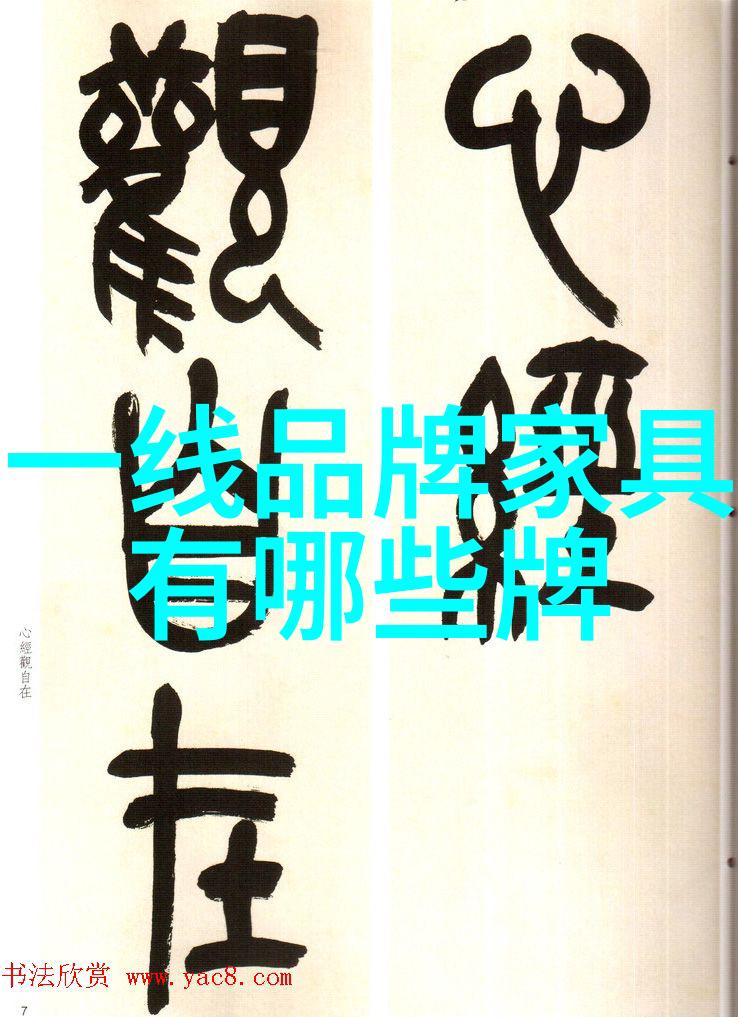 心經
觀自在
一线品牌家具
有哪些牌
心經觀自在
书法欣赏 www.yac8.com
7